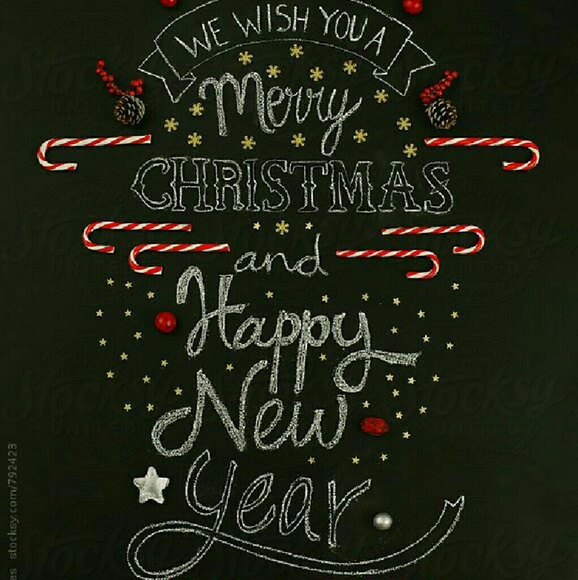 WE WISH YOU A
Merry
CHRISTMAS
and
Happy
New
Year
stocksy.com/792423